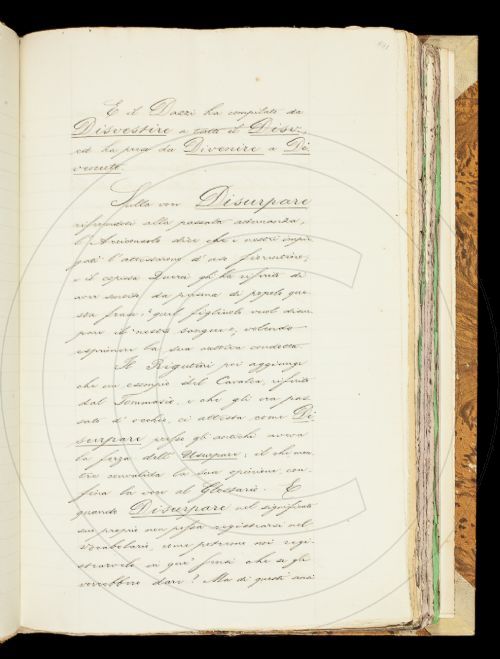 E il Dazzi ha compilato da
Disvestire a tutto il Disv.,
ed ha pure da Divenire a Di
venuto.
Sulla voce Disurpare
riferendosi alla passata adunanza,
l'Arciconsolo dice che i nostri impie
gati l'attestarono d'uso fiorentino;
e il copista Guerri gli ha riferito di
aver sentito da persona di popolo que
sta frase: quel figliuolo vuol disur
pare il nostro sangue, volendo
esprimere la sua cattiva condotta.
Il Rigutini poi aggiunge
che un esempio del Cavalca, riferito
dal Tommaseo, e che gli era pas
sato d'occhio, ci attesta come Di
surpare presso gli antichi aveva
la forza dell'Usurpare; il che men
tre convalida la sua opinione, con
fina la voce al Glossario. E
quando Disurpare nel significato
suo proprio non possa registrarsi nel
Vocabolario, come potremo noi regi
strarvelo in quei sensi che se gli
vorrebbero dare? Ma di questi anti